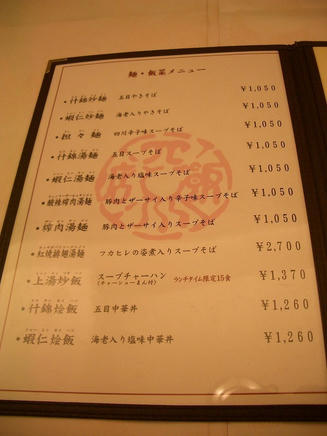 麺・飯菜メニュー
・什錦炒麺 五目やきそば ￥1,050
・蝦仁炒麺 海老入りやきそば ￥1,050
・担々麺 四川辛子味スープそば ￥1,050
・什錦湯麺 五目スープそば ￥1,050
・蝦仁湯麺 海老入り塩味スープそば ￥1,050
・酸辣搾肉湯麺 豚肉とザーサイ入り辛子味スープそば ￥1,050
・搾肉湯麺 豚肉とザーサイ入りスープそば ￥1,050
・紅焼排翅湯麺 フカヒレの姿煮入りスープそば ￥2,700
・上湯炒飯 スープチャーハン ランチタイム限定15食 ￥1,370
(チャーシューまん付)
・什錦烩飯 五目中華丼 ￥1,260
・蝦仁烩飯 海老入り塩味中華丼 ￥1,260